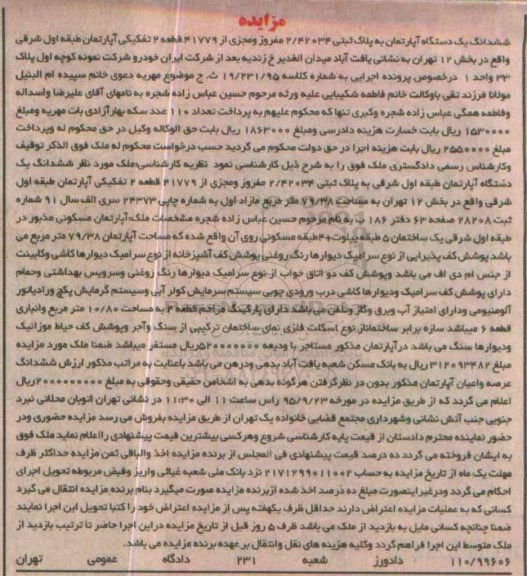 مزایده
ششدانگ یک دستگاه آپارتمان به پلاک ثبتی ۲/۴۲۰۳۴ مفروز ومجزی از ۴۱۷۷۹ قطعه ۲ تفکیکی آپارتمان طبقه اول شرقی
واقع در بخش ۱۲ تهران به نشانی یافت آباد میدان الغدیر خ زندیه بعد از شرکت ایران خودرو شرکت نمونه کوچه اول پلاک
۲۳ واحد ۱ درخصوص پرونده اجرایی به شماره کلاسه ۱۹/۲۳۱/۹۵ ث. ج موضوع مهریه دعوی خانم سپیده ام البنیل
مولانا فرزند تقی باوکالت خانم فاطمه شکیبایی علیه ورثه مرحوم حسین عباس زاده شجره به نامهای آقای علیرضا واسداله
وفاطمه همگی عباس زاده شجره وکبری تنها که محکوم علیهم به پرداخت تعداد ۱۱۰ عدد سکه بهارآزادی بابت مهریه ومبلغ
۱۵۳۰۰۰۰ ریال بابت خسارت هزینه دادرسی ومبلغ ۱۸۶۳۰۰۰ ریال بابت حق الوکاله وکیل در حق محکوم له وپرداخت
مبلغ ۲۵۵۰۰۰۰ ریال بابت هزینه اجرا در حق دولت محکوم می گردید حسب درخواست محکوم له ملک فوق الذکر توقیف
وکارشناس رسمی دادگستری ملک فوق را به شرح ذیل کارشناسی نمود نظریه کارشناسی:ملک مورد نظر ششدانگ یک
دستگاه آپارتمان طبقه اول شرقی به پلاک ثبتی ۲/۴۲۰۳۴ مفروز ومجزی از ۴۱۷۷۹ قطعه ۲ تفکیکی آپارتمان طبقه اول
شرقی واقع در بخش ۱۲ تهران به مساحت ۷۹/۳۸ متر مربع مازاد اول به شماره چاپی ۲۴۲۷۳ سری الف سال ۹۱ شماره
ثبت ۲۸۲۰۸ صفحه ۶۳ دفتر ۱۸۶ ب به نام مرحوم حسین عباس زاده شجره مشخصات ملک:آپارتمان مسکونی مذبور در
طبقه اول شرقی یک ساختمان ۵ طبقه پیلوت+۴طبقه مسکونی روی آن واقع شده که مساحت آپارتمان ۷۹/۳۸ متر مربع می
باشد پوشش کف پذیرایی از نوع سرامیک دیوارها رنگ روغنی پوشش کف آشپزخانه از نوع سرامیک دیوارها کاشی وکابینت
از جنس ام دی اف می باشد وپوشش کف دو اتاق خواب از نوع سرامیک دیوارها رنگ روغنی وسرویس بهداشتی وحمام
دارای پوشش کف سرامیک ودیوارها کاشی درب ورودی چوبی سیستم سرمایش کولر آبی وسیستم گرمایش پکیج ورادیاتور
آلومنیومی ودارای امتیاز آب وبرق وگاز وتلفن می باشد دارای پارکینگ مزاحم قطعه ۴ به مساحت ۱۰/۸۰ متر مربع وانباری
قطعه ۶ میباشد سازه برابر ساختمانبار نوع اسکلت فلزی نمای ساختمان ترکیبی از سنگ وآجر وپوشش کف حیاط موزائیک
ودیوارها سنگ می باشد درآپارتمان مذکور مستاجر با ودیعه ۵۲۰۰۰۰۰۰۰ریال مستقر میباشد ضمنا ملک مورد مزایده
مبلغ ۳۱۲۰۹۳۴۸۲ ریال به بانک مسکن شعبه یافت آباد بدهی ودرهن می باشد باعنایت به مراتب مذکور ارزش ششدانگ
عرصه واعیان آپارتمان مذکور بدون در نظرگرفتن هرگونه بدهی به اشخاص حقیقی وحقوقی به مبلغ ۲۰۰۰۰۰۰۰۰۰ریال
اعلام می گردد که از طریق مزایده در مورخه ۹۵/۹/۲۳ راس ساعت ۱۱ الی ۱۱:۳۰ در نشانی تهران اتوبان محلاتی نبرد
جنوبی جنب آتش نشانی وشهرداری مجتمع قضایی خانواده یک تهران از طریق مزایده بفروش می رسد مزایده حضوری ودر
حضور نماینده محترم دادستان از قیمت پایه کارشناسی شروع وهرکسی بیشترین قیمت پیشنهادی رااعلام نماید ملک فوق
به ایشان فروخته می گردد ده درصد قیمت پیشنهادی فی المجلس از برنده مزایده اخذ والباقی ثمن مزایده حداکثر ظرف
مهلت یک ماه از تاریخ مزایده به حساب ۲۱۷۱۲۹۹۰۱۱۰۰۲ نزد بانک ملی شعبه غیاثی واریز وقبض مربوطه تحویل اجرای
احکام می گردد ودرغیر اینصورت مبلغ ده درصد اخذ شده ازبرنده مزایده صورت میگیرد بنام برنده مزایده انتقال می گیرد
کسانی که به عملیات مزایده اعتراض دارند حداقل ظرف یکهفته پس از مزایده اعتراض خود را کتبا تحویل این اجرا نمایند
ضمنا چنانچه کسانی مایل به بازدید از ملک می باشد ظرف ۵ روز قبل از تاریخ مزایده دراین اجرا حاضر تا ترتیب بازدید از
ملک متوسط این اجرا فراهم گردد وکلیه هزینه های نقل وانتقال بر عهده برنده مزایده می باشد.
۱۱۰/۹۹۶۰۶ دادورز شعبه ۲۳۱ دادگاه عمومی تهران